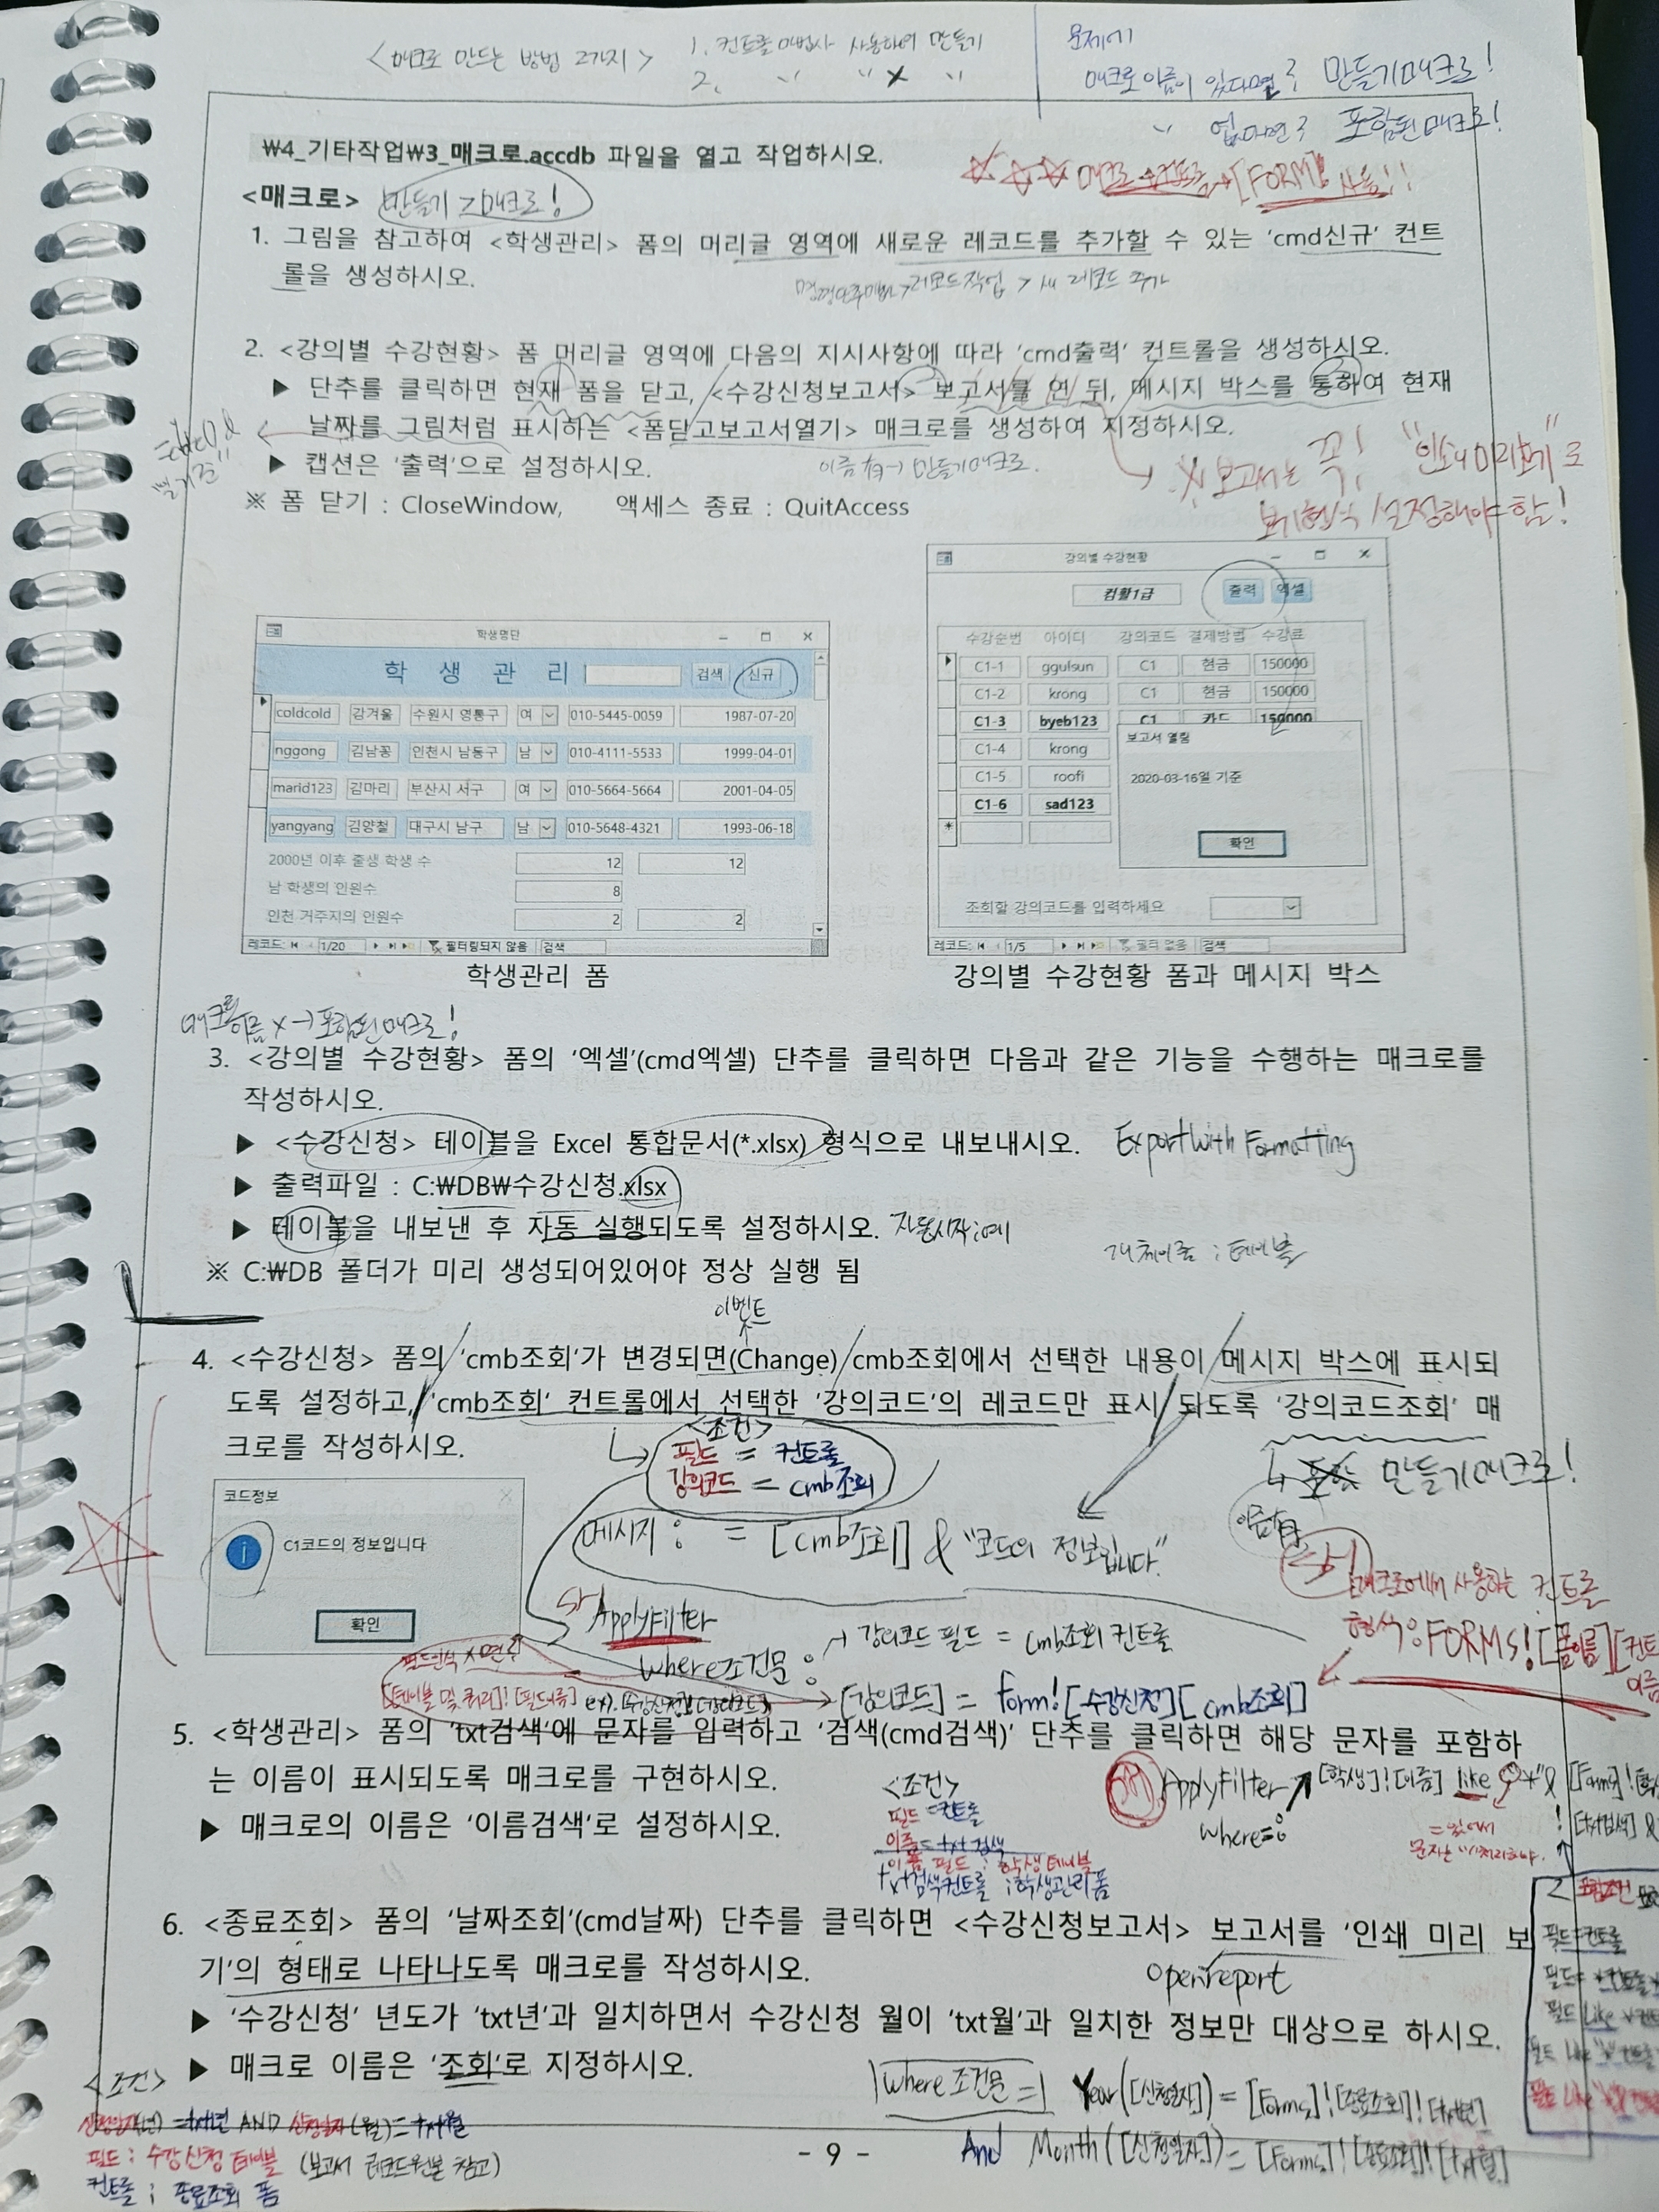 <매크로 만드는 방법 2가지> 1. 컨트롤 마법사 사용하여 만들기
2. " " X "
문제에
매크로 이름이 있다면? 만들기 매크로!
" 없다면? 포함된 매크로!
₩4_기타작업₩3_매크로.accdb 파일을 열고 작업하시오.
<매크로> 만들기 > 매크로!
1. 그림을 참고하여 <학생관리> 폼의 머리글 영역에 새로운 레코드를 추가할 수 있는 'cmd신규' 컨트
롤을 생성하시오.
> 레코드작업 > 새 레코드 추가
2. <강의별 수강현황> 폼 머리글 영역에 다음의 지시사항에 따라 'cmd출력' 컨트롤을 생성하시오.
▶ 단추를 클릭하면 현재 폼을 닫고, <수강신청보고서> 보고서를 연 뒤, 메시지 박스를 통하여 현재
날짜를 그림처럼 표시하는 <폼닫고보고서열기> 매크로를 생성하여 지정하시오.
▶ 캡션은 '출력'으로 설정하시오.
이름 有 → 만들기매크로.
※ 보고서는 꼭! "인쇄 미리보기"로
보기형식 설정해야 함!
※ 폼 닫기 : CloseWindow, 액세스 종료 : QuitAccess
학생명단
학 생 관 리 검색 신규
coldcold 강겨울 수원시 영통구 여 010-5445-0059 1987-07-20
nggong 김남꽁 인천시 남동구 남 010-4111-5533 1999-04-01
marid123 김마리 부산시 서구 여 010-5664-5664 2001-04-05
yangyang 김양철 대구시 남구 남 010-5648-4321 1993-06-18
2000년 이후 출생 학생 수 12 12
남 학생의 인원수 8
인천 거주지의 인원수 2 2
레코드: 1/20 필터링되지 않음 검색
학생관리 폼
강의별 수강현황
컴활1급 출력 엑셀
수강순번 아이디 강의코드 결제방법 수강료
C1-1 ggulsun C1 현금 150000
C1-2 krong C1 현금 150000
C1-3 byeb123 C1 카드 150000
C1-4 krong
C1-5 roofi
C1-6 sad123
보고서 열림
2020-03-16일 기준
확인
조회할 강의코드를 입력하세요
레코드: 1/5 필터 없음 검색
강의별 수강현황 폼과 메시지 박스
매크로이름 X → 포함된 매크로!
3. <강의별 수강현황> 폼의 '엑셀'(cmd엑셀) 단추를 클릭하면 다음과 같은 기능을 수행하는 매크로를
작성하시오.
▶ <수강신청> 테이블을 Excel 통합문서(*.xlsx) 형식으로 내보내시오. ExportWithFormatting
▶ 출력파일 : C:₩DB₩수강신청.xlsx
▶ 테이블을 내보낸 후 자동 실행되도록 설정하시오. 자동시작:예
개체이름 : 테이블
※ C:₩DB 폴더가 미리 생성되어있어야 정상 실행 됨
이벤트
4. <수강신청> 폼의 'cmb조회'가 변경되면(Change) cmb조회에서 선택한 내용이 메시지 박스에 표시되
도록 설정하고, 'cmb조회' 컨트롤에서 선택한 '강의코드'의 레코드만 표시 되도록 '강의코드조회' 매
크로를 작성하시오.
<조건>
필드 = 컨트롤
강의코드 = cmb조회
만들기매크로!
코드정보
C1코드의 정보입니다
확인
메시지 : = [cmb조회] & "코드의 정보입니다."
매크로에서 사용하는 컨트롤
형식 : FORMS![폼이름][컨트
이름
ApplyFilter
where조건문 : → 강의코드 필드 = cmb조회 컨트롤
[강의코드] = form![수강신청][cmb조회]
5. <학생관리> 폼의 'txt검색'에 문자를 입력하고 '검색(cmd검색)' 단추를 클릭하면 해당 문자를 포함하
는 이름이 표시되도록 매크로를 구현하시오.
▶ 매크로의 이름은 '이름검색'로 설정하시오.
<조건>
필드 = 컨트롤
이름 = txt검색
이름 필드 : 학생테이블
txt검색컨트롤 : 학생관리폼
ApplyFilter [학생]![이름] like "*" & [Forms]!
where= : ![txt검색] &
6. <종료조회> 폼의 '날짜조회'(cmd날짜) 단추를 클릭하면 <수강신청보고서> 보고서를 '인쇄 미리 보
기'의 형태로 나타나도록 매크로를 작성하시오.
openreport
▶ '수강신청' 년도가 'txt년'과 일치하면서 수강신청 월이 'txt월'과 일치한 정보만 대상으로 하시오.
▶ 매크로 이름은 '조회'로 지정하시오.
<조건>
신청일자(년) = txt년 AND 신청일자(월) = txt월
필드 : 수강신청 테이블 (보고서 레코드원본 참고)
컨트롤 : 종료조회 폼
where조건문 = Year([신청일자]) = [Forms]![종료조회]![txt년]
And Month([신청일자]) = [Forms]![종료조회]![txt월]
- 9 -